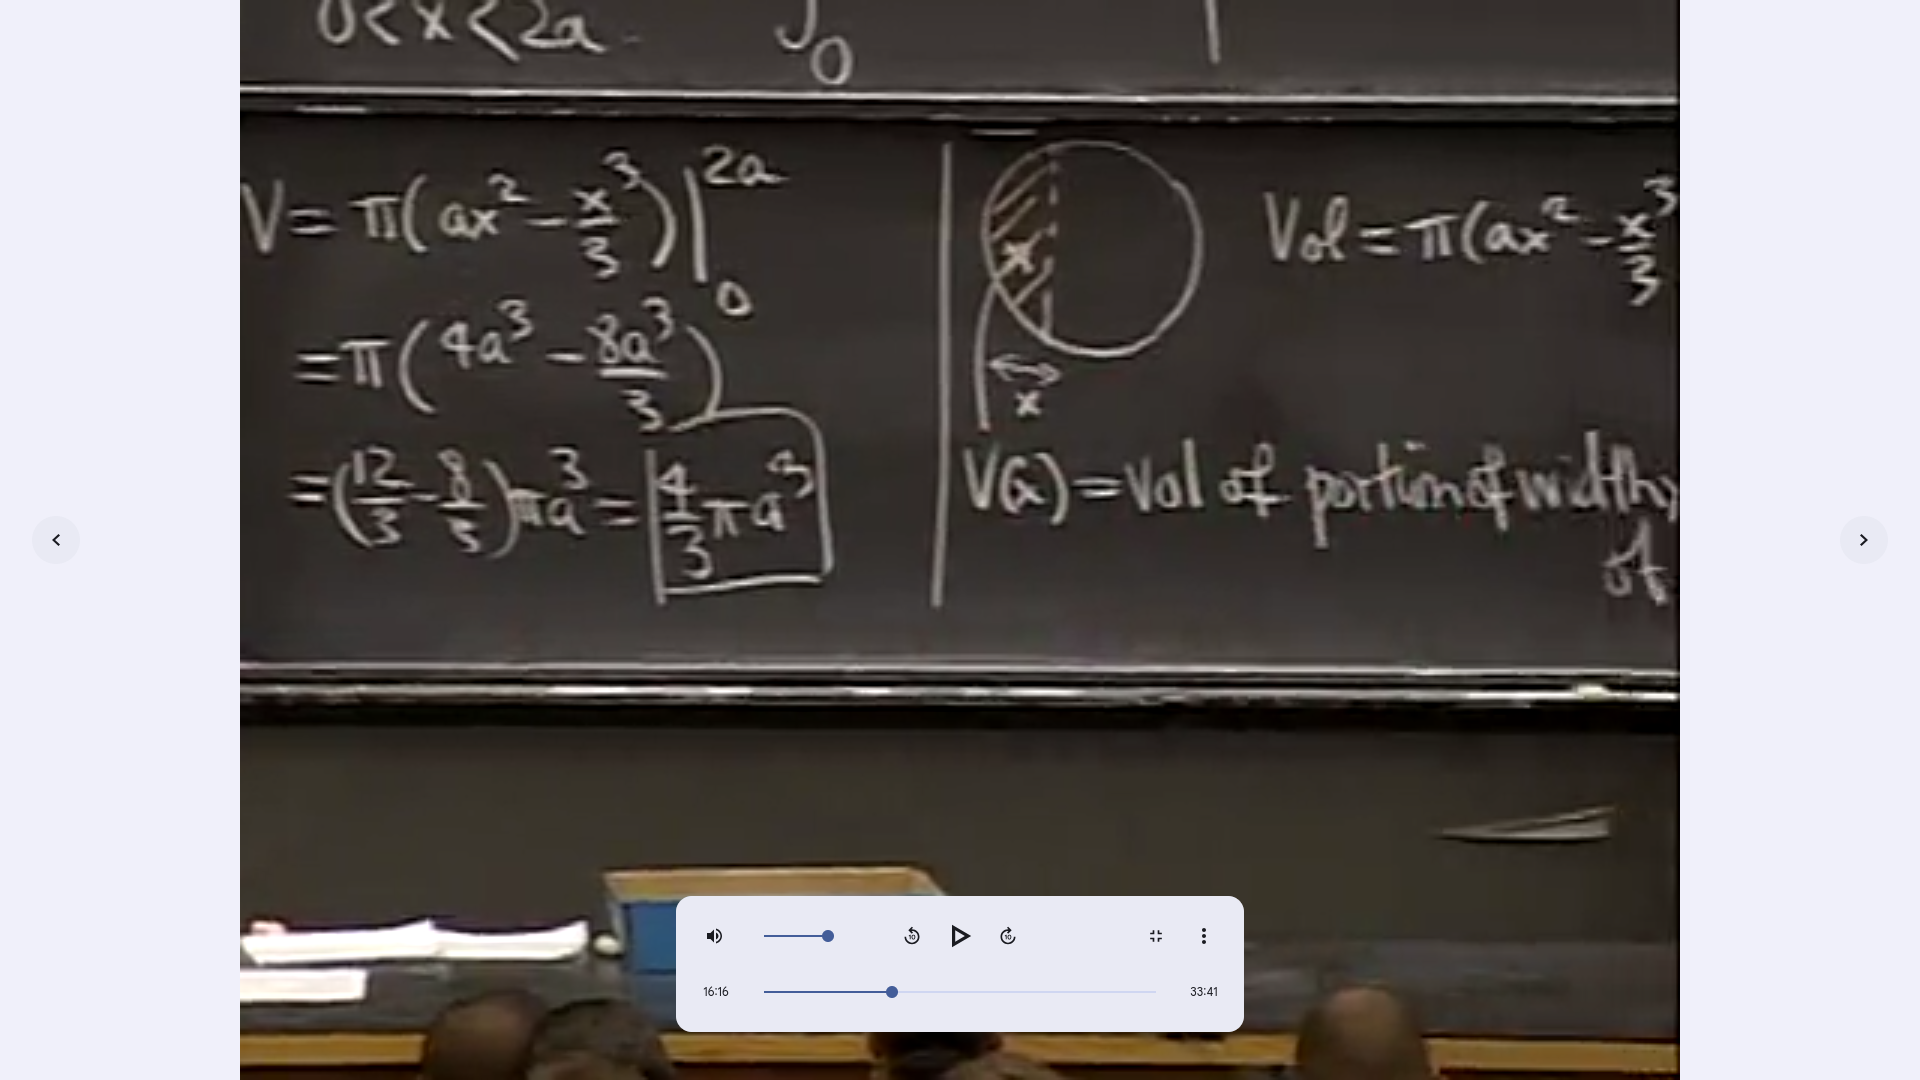 0<x<2a ∫0
V = π(ax² - x³/3)|₀²ᵃ
= π(4a³ - 8a³/3)
= (12/3 - 8/3)πa³ = 4/3 πa³
x
x
Vol = π(ax² - x³/3
V(x) = Vol of portion of width x
of
10 10
16:16 33:41